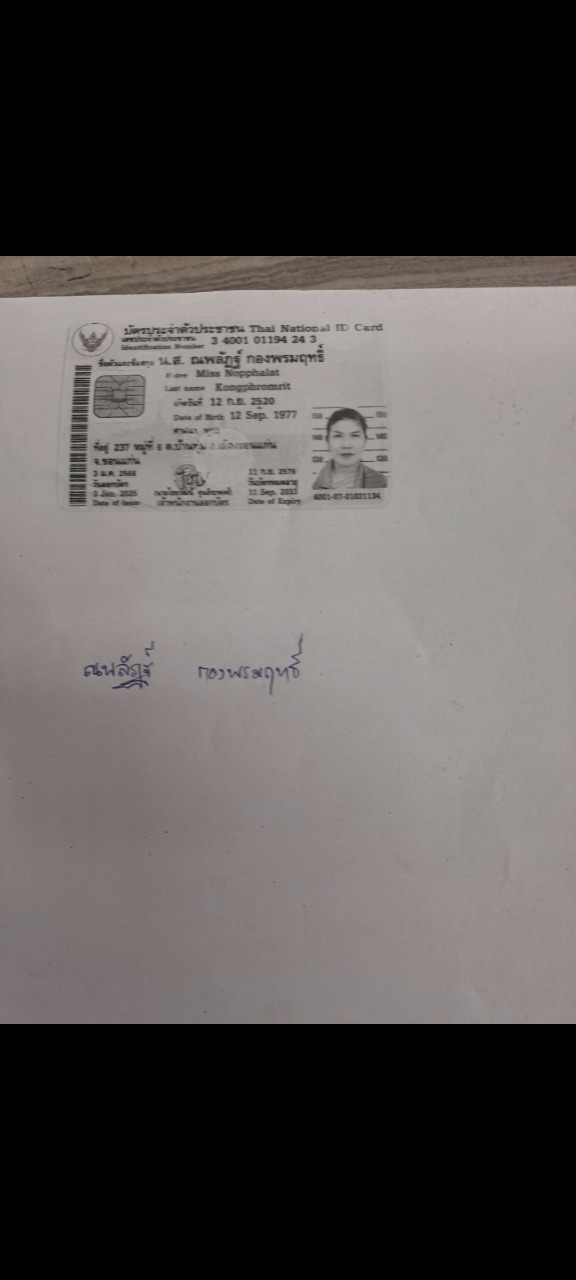 บัตรประจำตัวประชาชน Thai National ID Card
เลขประจำตัวประชาชน
Identification Number 3 4001 01194 24 3
ชื่อตัวและชื่อสกุล น.ส. ณพลัฏฐ์ กองพรมฤทธิ์
Name Miss Nopphalat
Last name Kongphromrit
เกิดวันที่ 12 ก.ย. 2520
Date of Birth 12 Sep. 1977
ศาสนา พุทธ
ที่อยู่ 237 หมู่ที่ 6 ต.บ้านทุ่ม อ.เมืองขอนแก่น
จ.ขอนแก่น
3 ม.ค. 2568
วันออกบัตร
3 Jan. 2025
Date of Issue
เจ้าพนักงานออกบัตร
11 ก.ย. 2576
วันบัตรหมดอายุ
11 Sep. 2033
Date of Expiry
150 150
140 140
130 130
4001-07-01031134
ณพลัฏฐ์ กองพรมฤทธิ์